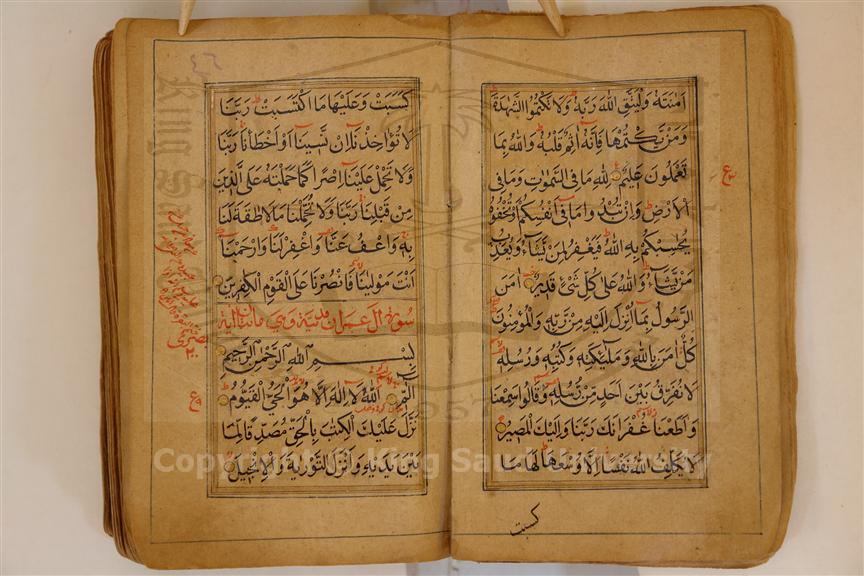 امنته وليتق الله ربه ولا تكتموا الشهدة
ومن يكتمها فانه اثم قلبه والله بما
تعملون عليم لله ما فى السموت وما فى
الارض وان تبدوا ما فى انفسكم او تخفوه
يحاسبكم به الله فيغفر لمن يشاء ويعذب
من يشاء والله على كل شىء قدير امن
الرسول بما انزل اليه من ربه والمؤمنون
كل امن بالله وملئكته وكتبه ورسله
لا نفرق بين احد من رسله وقالوا سمعنا
واطعنا غفرانك ربنا واليك المصير
لا يكلف الله نفسا الا وسعها لها ما
كسبت
كسبت وعليها ما اكتسبت ربنا
لا تؤاخذنا ان نسينا او اخطأنا ربنا
ولا تحمل علينا اصرا كما حملته على الذين
من قبلنا ربنا ولا تحملنا ما لا طاقة لنا
به واعف عنا واغفر لنا وارحمنا
انت مولينا فانصرنا على القوم الكفرين
سورة ال عمران مدنية وهى مائتان اية
بسم الله الرحمن الرحيم
الم الله لا اله الا هو الحى القيوم
نزل عليك الكتب بالحق مصدقا لما
بين يديه وانزل التورية والانجيل
Copyright © King Saud University